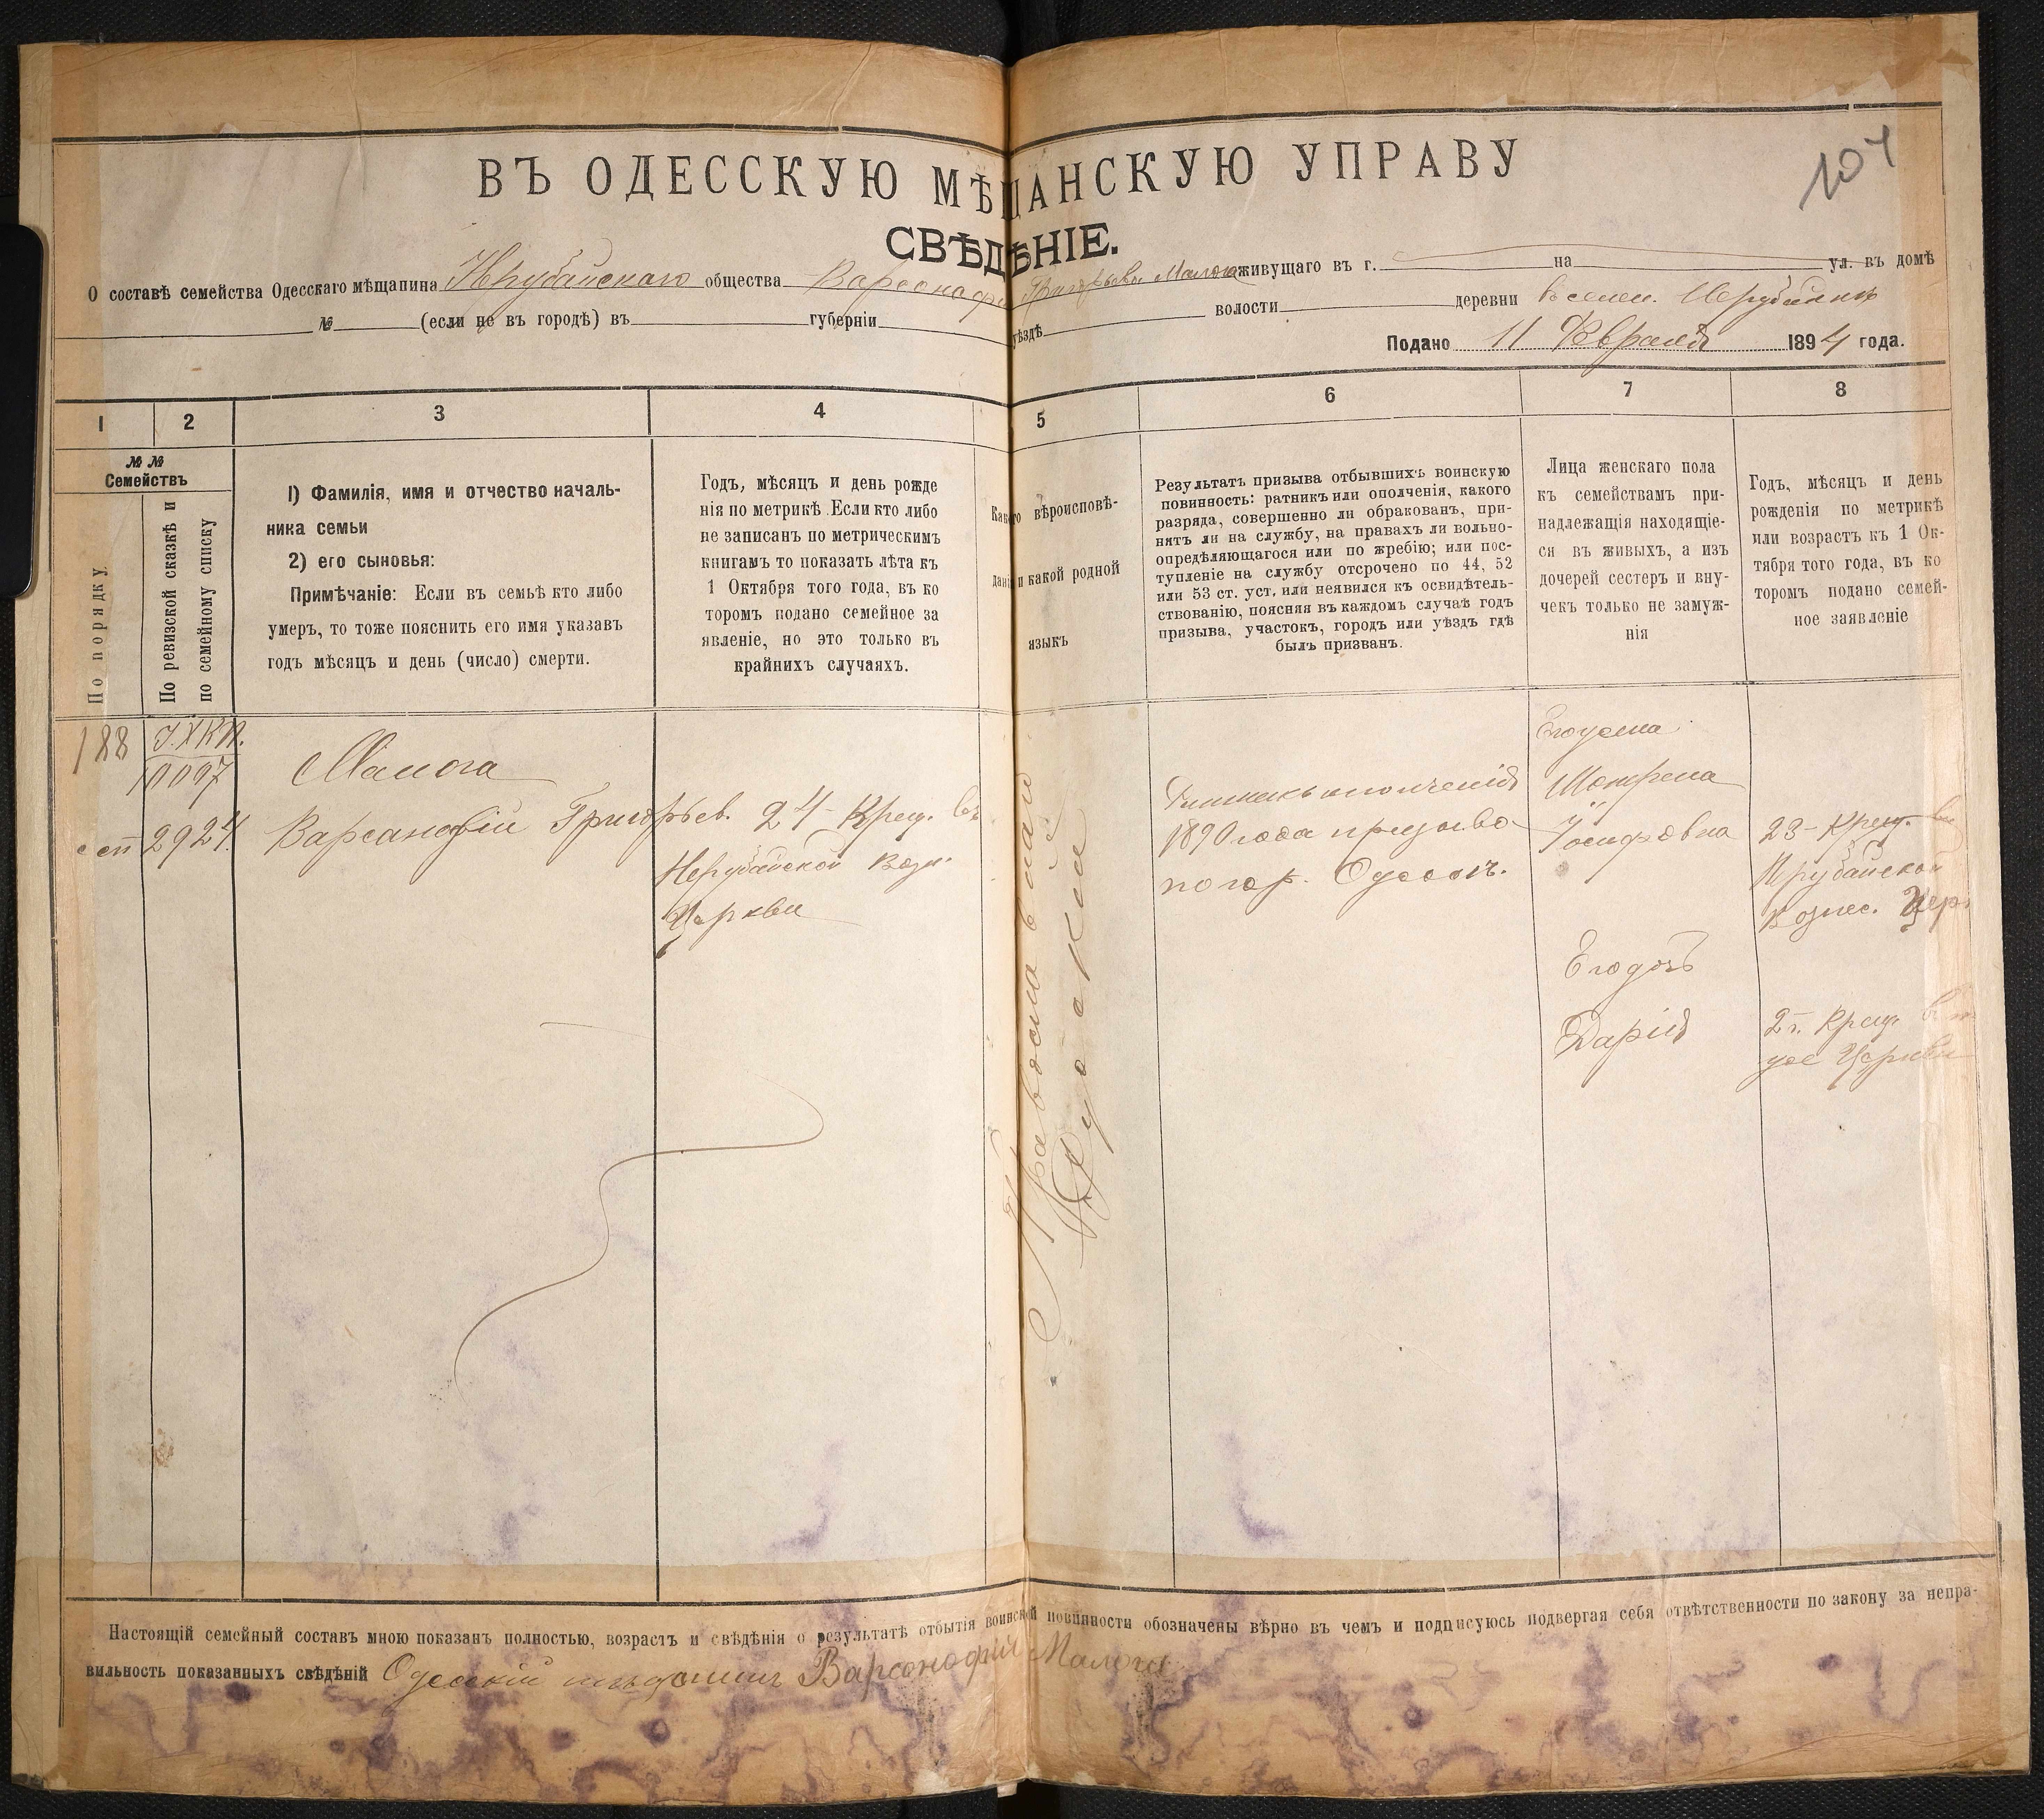 ВЪ ОДЕССКУЮ МѢЩАНСКУЮ УПРАВУ
104
СВѢДѢНІЕ.
О составѣ семейства Одесскаго мѣщанина Нерубайскаго общества Варсонафія Григорьева Малога живущаго въ г. на ул. въ домѣ
№ (если не въ городѣ) въ губерніи уѣздѣ волости деревни въ селен.
Подано 11 Февраля 1894 года.
1 2 3 4 5 6 7 8
№ №
Семействъ
По порядку
По ревизской сказкѣ и
по семейному списку
1) Фамилія, имя и отчество началь-
ника семьи
2) его сыновья:
Примѣчаніе: Если въ семьѣ кто либо
умеръ, то тоже пояснить его имя указавъ
годъ мѣсяцъ и день (число) смерти.
Годъ, мѣсяцъ и день рожде
нія по метрикѣ. Если кто либо
не записанъ по метрическимъ
книгамъ то показать лѣта къ
1 Октября того года, въ ко
торомъ подано семейное за
явленіе, но это только въ
крайнихъ случаяхъ.
Какого вѣроисповѣ-
данія и какой родной
языкъ
Результатъ призыва отбывшихъ воинскую
повинность: ратникъ или ополченія, какого
разряда, совершенно ли обракованъ, при-
нятъ ли на службу, на правахъ ли вольно-
опредѣляющагося или по жребію; или пос-
тупленіе на службу отсрочено по 44, 52
или 53 ст. уст. или неявился къ освидѣтель-
ствованію, поясняя въ каждомъ случаѣ годъ
призыва, участокъ, городъ или уѣздъ гдѣ
былъ призванъ.
Лица женскаго пола
къ семействамъ при-
надлежащія находящіе-
ся въ живыхъ, а изъ
дочерей сестеръ и вну-
чекъ только не замуж-
нія
Годъ, мѣсяцъ и день
рожденія по метрикѣ
или возрастъ къ 1 Ок-
тября того года, въ ко
торомъ подано семей-
ное заявленіе
188
10097
2924
Малога
Варсанофій Григорьев. 24 - Крещ. въ
Нерубайской Возн.
Церкви
Православнаго
Русской
Ратникъ ополченія
1890 года призыва
по гор. Одессѣ.
Его жена
Мотрена
Іосифовна
23 - Крещ. въ
Нерубайской
Вознес. Цер.
Его дочь
Дарія
2 г. Крещ. въ
Церкви
Настоящій семейный составъ мною показанъ полностью, возрастъ и свѣдѣнія о результатѣ отбытія воинской повинности обозначены вѣрно въ чемъ и подписуюсь подвергая себя отвѣтственности по закону за непра-
вильность показанныхъ свѣдѣній Одесскій мѣщанинъ Варсонофій Малога